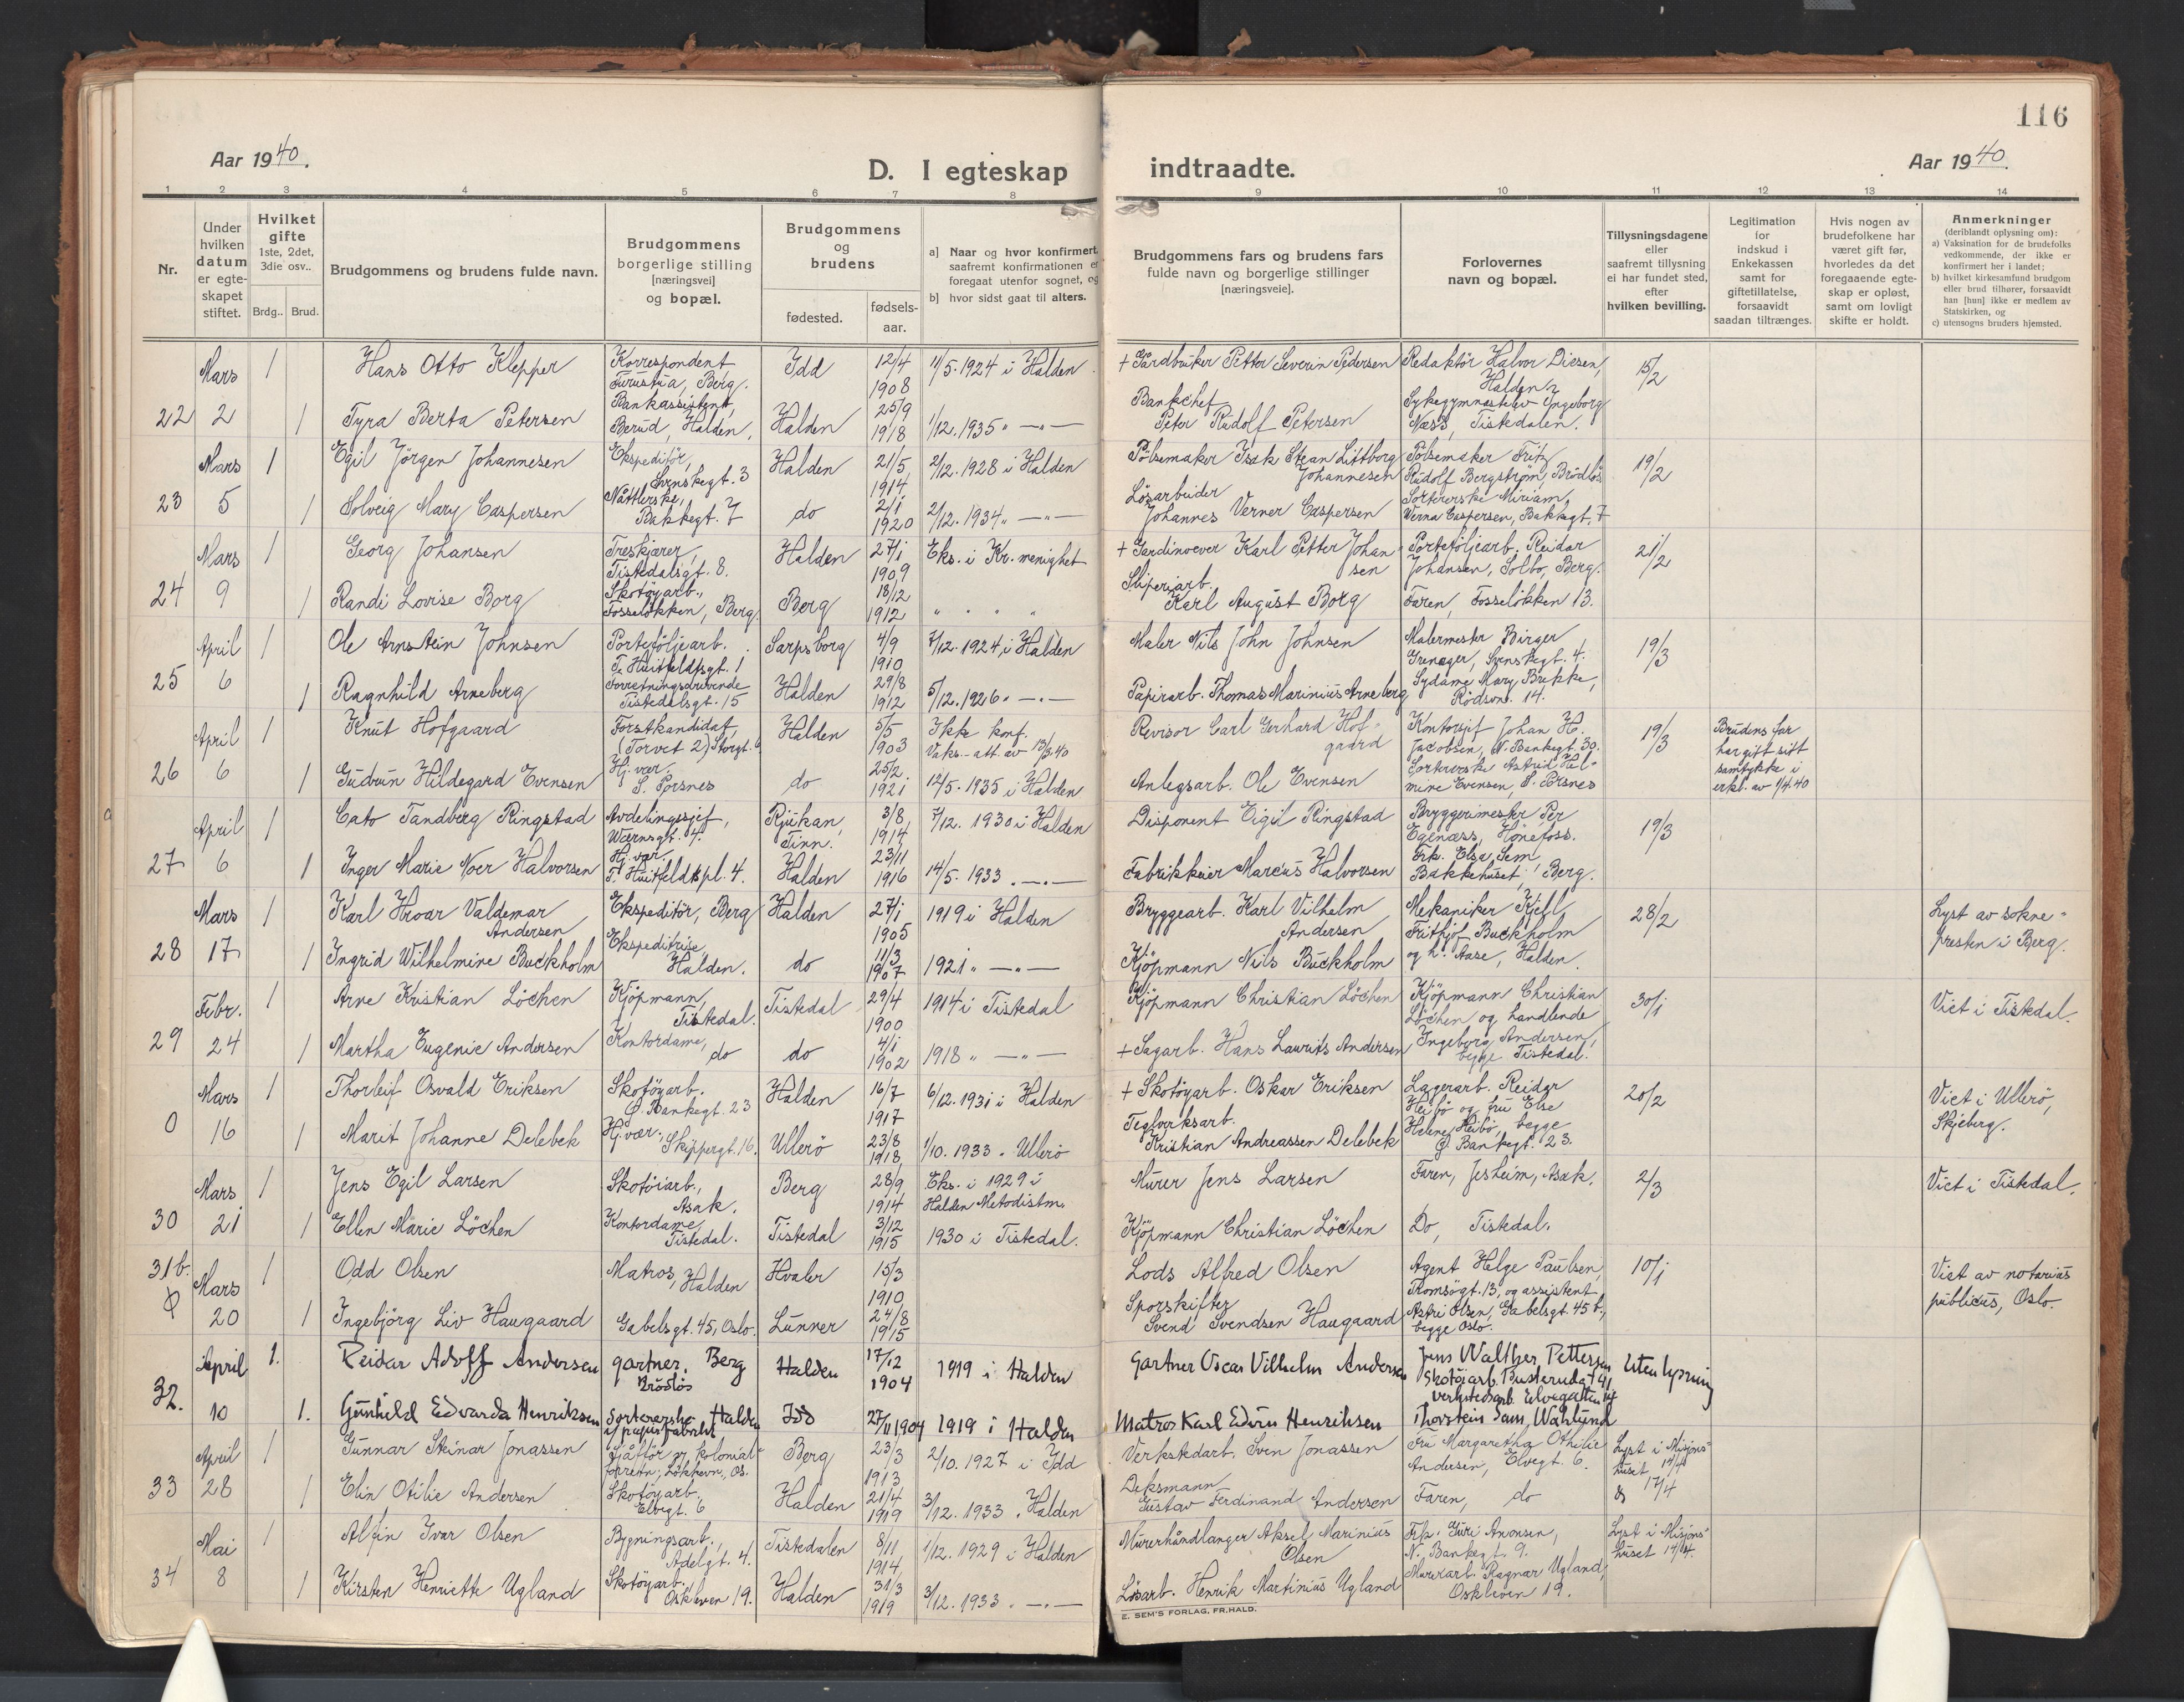 116
Aar 1940.
D. I egteskap indtraadte.
Aar 1940.
1 2 3 4 5 6 7 8 9 10 11 12 13 14
Nr.
Under hvilken datum er egte-skapet stiftet.
Hvilket gifte 1ste, 2det, 3die osv..
Brdg.. Brud.
Brudgommens og brudens fulde navn.
Brudgommens borgerlige stilling [næringsvei] og bopæl.
Brudgommens og brudens
fødested. fødsels-aar.
a] Naar og hvor konfirmert, saafremt konfirmationen er foregaat utenfor sognet, og
b] hvor sidst gaat til alters.
Brudgommens fars og brudens fars fulde navn og borgerlige stillinger [næringsveie].
Forlovernes navn og bopæl.
Tillysningsdagene eller saafremt tillysning ei har fundet sted, efter hvilken bevilling.
Legitimation for indskud i Enkekassen samt for giftetillatelse, forsaavidt saadan tiltrænges.
Hvis nogen av brudefolkene har været gift før, hvorledes da det foregaaende egte-skap er opløst, samt om lovligt skifte er holdt.
Anmerkninger (deriblandt oplysning om):
a) Vaksination for de brudefolks vedkommende, der ikke er konfirmert her i landet;
b) hvilket kirkesamfund brudgom eller brud tilhører, forsaavidt han [hun] ikke er medlem av Statskirken, og
c) utensogns bruders hjemsted.
Mars 1 Hans Otto Klepper Korrespondent Furustua, Berg. Idd 12/4 1908 11/5. 1924 i Halden + Gardbruker Petter Severin Pedersen Redaktör Halvor Diesen, Halden 15/2
22 2 1 Tyra Berta Petersen Bankassistent, Berud, Halden. Halden 25/9 1918 1/12. 1935 " — " — Bankchef Peter Rudolf Petersen Sykegymnastelev Ingeborg Næss, Tistedalen.
Mars 1 Egil Jörgen Johannesen Ekspeditör, Svenskegt. 3 Halden 21/5 1914 2/12. 1928 i Halden Pölsemaker Isak Stean Littborg Johannesen Pölsemaker Fritz Rudolf Bergström, Brödlös 19/2
23 5 1 Solveig Mary Caspersen Nåttlerske, Bakkegt. 7 do 2/1 1920 2/12. 1934 " — " — Lösarbeider Johannes Verner Caspersen Sortererske Miriam Verna Caspersen, Bakkegt. 7
Mars 1 Georg Johansen Treskjærer, Tistedalsgt. 8. Halden 27/1 1909 Eks. i Kr. menighet + Gardinvever Karl Petter Johansen Porteföljearb. Reidar Johansen, Solbo, Berg. 21/2
24 9 1 Randi Lovise Borg Skotöyarb., Fosselökken, Berg Berg 18/12 1912 " " " " Sliperiarb. Karl August Borg Faren, Fosselökken 13.
April 1 Ole Arnstein Johnsen Porteföljearb. T. Huitfeldtsgt. 1 Sarpsborg 4/9 1910 7/12. 1924, i Halden Maler Nils John Johnsen Malermester Birger Grenager, Svenskegt. 4. 19/3
25 6 1 Ragnhild Arneberg Forretningsdrivende Tistedalsgt. 15 Halden 29/8 1912 5/12. 1926 " — " — Papirarb. Thomas Marinius Arneberg Sydame Mary Brekke, Rödsv. 14.
April 1 Knut Hofgaard Forstkandidat, (Torvet 2) Storgt. 6 Halden 5/5 1903 Ikke konf. Vaks.-att av 13/3 40 Revisor Carl Gerhard Hofgaard Kontorsjef Johan H. Jacobsen, N. Bankegt. 30. 19/3 Brudens far har gitt sitt samtykke i erkl. av 1/4. 40
26 6 1 Gudrun Hildegard Evensen Hj. vær. S. Porsnes do 25/2 1921 12/5. 1935 i Halden Anlegsarb. Ole Evensen Sortererske Astrid Helmine Evensen, S. Porsnes
April 1 Cato Tandberg Ringstad Avdelingssjef, Wærnsgt. 4. Rjukan, Tinn. 3/8 1914 7/12. 1930 i Halden Disponent Eigil Ringstad Bryggerimester Per Egenæss, Hönefoss. 19/3
27 6 1 Inger Marie Noer Halvorsen Hj. vær. T. Huitfeldtspl. 4. Halden 23/11 1916 14/5. 1933 " — " — Fabrikkeier Marcus Halvorsen Frk. Elsa Sem, Bakkehuset, Berg.
Mars 1 Karl Hroar Valdemar Andersen Ekspeditör, Berg Halden 27/1 1905 1919 i Halden Bryggearb. Karl Vilhelm Andersen Mekaniker Kjell Frithjof Buckholm 28/2 Lyst av sokne-presten i Berg.
28 17 1 Ingrid Wilhelmine Buckholm Ekspeditrise, Halden. do 11/3 1907 1921 " — " — Kjöpmann Nils Buckholm og h. Aase, Halden.
Febr. 1 Arne Kristian Löchen Kjöpmann, Tistedal. Tistedal 29/4 1900 1914 i Tistedal Kjöpmann Christian Löchen Kjöpmann Christian Löchen og handlende 30/1 Viet i Tistedal.
29 24 1 Martha Eugenie Andersen Kontordame, do do 4/1 1902 1918 " — " — + Sagarb. Hans Laurits Andersen Ingeborg Andersen, begge Tistedal.
Mars 1 Thorleif Osvald Eriksen Skotöyarb. Ø. Bankegt. 23 Halden 16/7 1917 6/12. 1931 i Halden + Skotöyarb. Oskar Eriksen Lagerarb. Reidar Heibö og fru Else 20/2 Viet i Ullerö, Skjeberg.
0 16 1 Marit Johanne Delebek Hj. vær. Skippergt. 16. Ullerö 23/8 1918 1/10. 1933 " Ullerö Teglverksarb. Kristian Andreassen Delebek Helene Heibö, begge Ø. Bankegt. 23.
Mars 1 Jens Egil Larsen Skotöiarb., Asak. Berg 28/9 1914 Eks. i 1929 i Halden Metodistm. Murer Jens Larsen Faren, Jesheim, Asak. 2/3 Viet i Tistedal.
30 21 1 Ellen Marie Löchen Kontordame, Tistedal. Tistedal 3/12 1915 1930 i Tistedal. Kjöpmann Christian Löchen Do, Tistedal.
31b. Mars 1 Odd Olsen Matros, Halden Hvaler 15/3 1910 Lods Alfred Olsen Agent Helge Paulsen, Tromsögt. 13, og assistent 10/1 Viet av notarius publicus, Oslo.
20 1 Ingebjörg Liv Haugaard Gabelsgt. 45, Oslo. Lunner 24/8 1915 Sporskifter Svend Svendsen Haugaard Astri Olsen, Gabelsgt. 45 b, begge Oslo.
April 1. Reidar Adolf Andersen gartner. Berg Brödlös Halden 17/12 1904 1919 i Halden Gartner Oscar Vilhelm Andersen Jens Walther Pettersen Skotöiarb. Busterudgt 41 Uten lysning
32. 10 1. Gunhild Edvarda Henriksen Sortererske Halden papirfabrikk Idd 27/11 1904 1919 i Halden Matros Karl Edvin Henriksen verkstedsarb. Elvegatten 14 Thorstein Sam. Wahlund
April 1 Gunnar Steinar Jonassen Sjåför og kolonialforretn., Lökkevn, Os. Berg 23/3 1913 2/10. 1927 i Idd Verkstedarb. Sven Jonassen Fru Margaretha Othilie Andersen, Elvegt. 6. Lyst i Misjons-huset 14/4
33 28 1 Elin Otilie Andersen Skotöyarb. Elvegt. 6 Halden 21/4 1919 3/12. 1933 " Halden Deksmann Gustav Ferdinand Andersen Faren, do 17/4
Mai 1 Alfin Ivar Olsen Bygningsarb., Adelgt. 4. Tistedalen 8/11 1914 1/12. 1929 i Halden Murerhåndlanger Aksel Marinius Olsen Frk. Guri Anonsen, N. Bankegt. 9. Lyst i Misjons-huset 14/4.
34 8 1 Kirsten Henriette Ugland Skotöyarb. Oskleven 19. Halden 31/3 1919 3/12. 1933 " — " — Lösarb. Henrik Martinius Ugland Murerarb. Ragnar Ugland, Oskleven 19.
E. SEM'S FORLAG, FR.HALD.